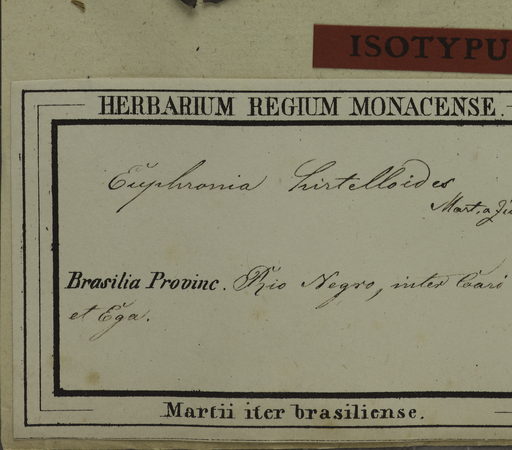 ISOTYPU
HERBARIUM REGIUM MONACENSE.
Euphronia hirtelloides
Mart. & Zu
Brasilia Provinc. Rio Negro, inter Cari
et Ega.
Martii iter brasiliense.